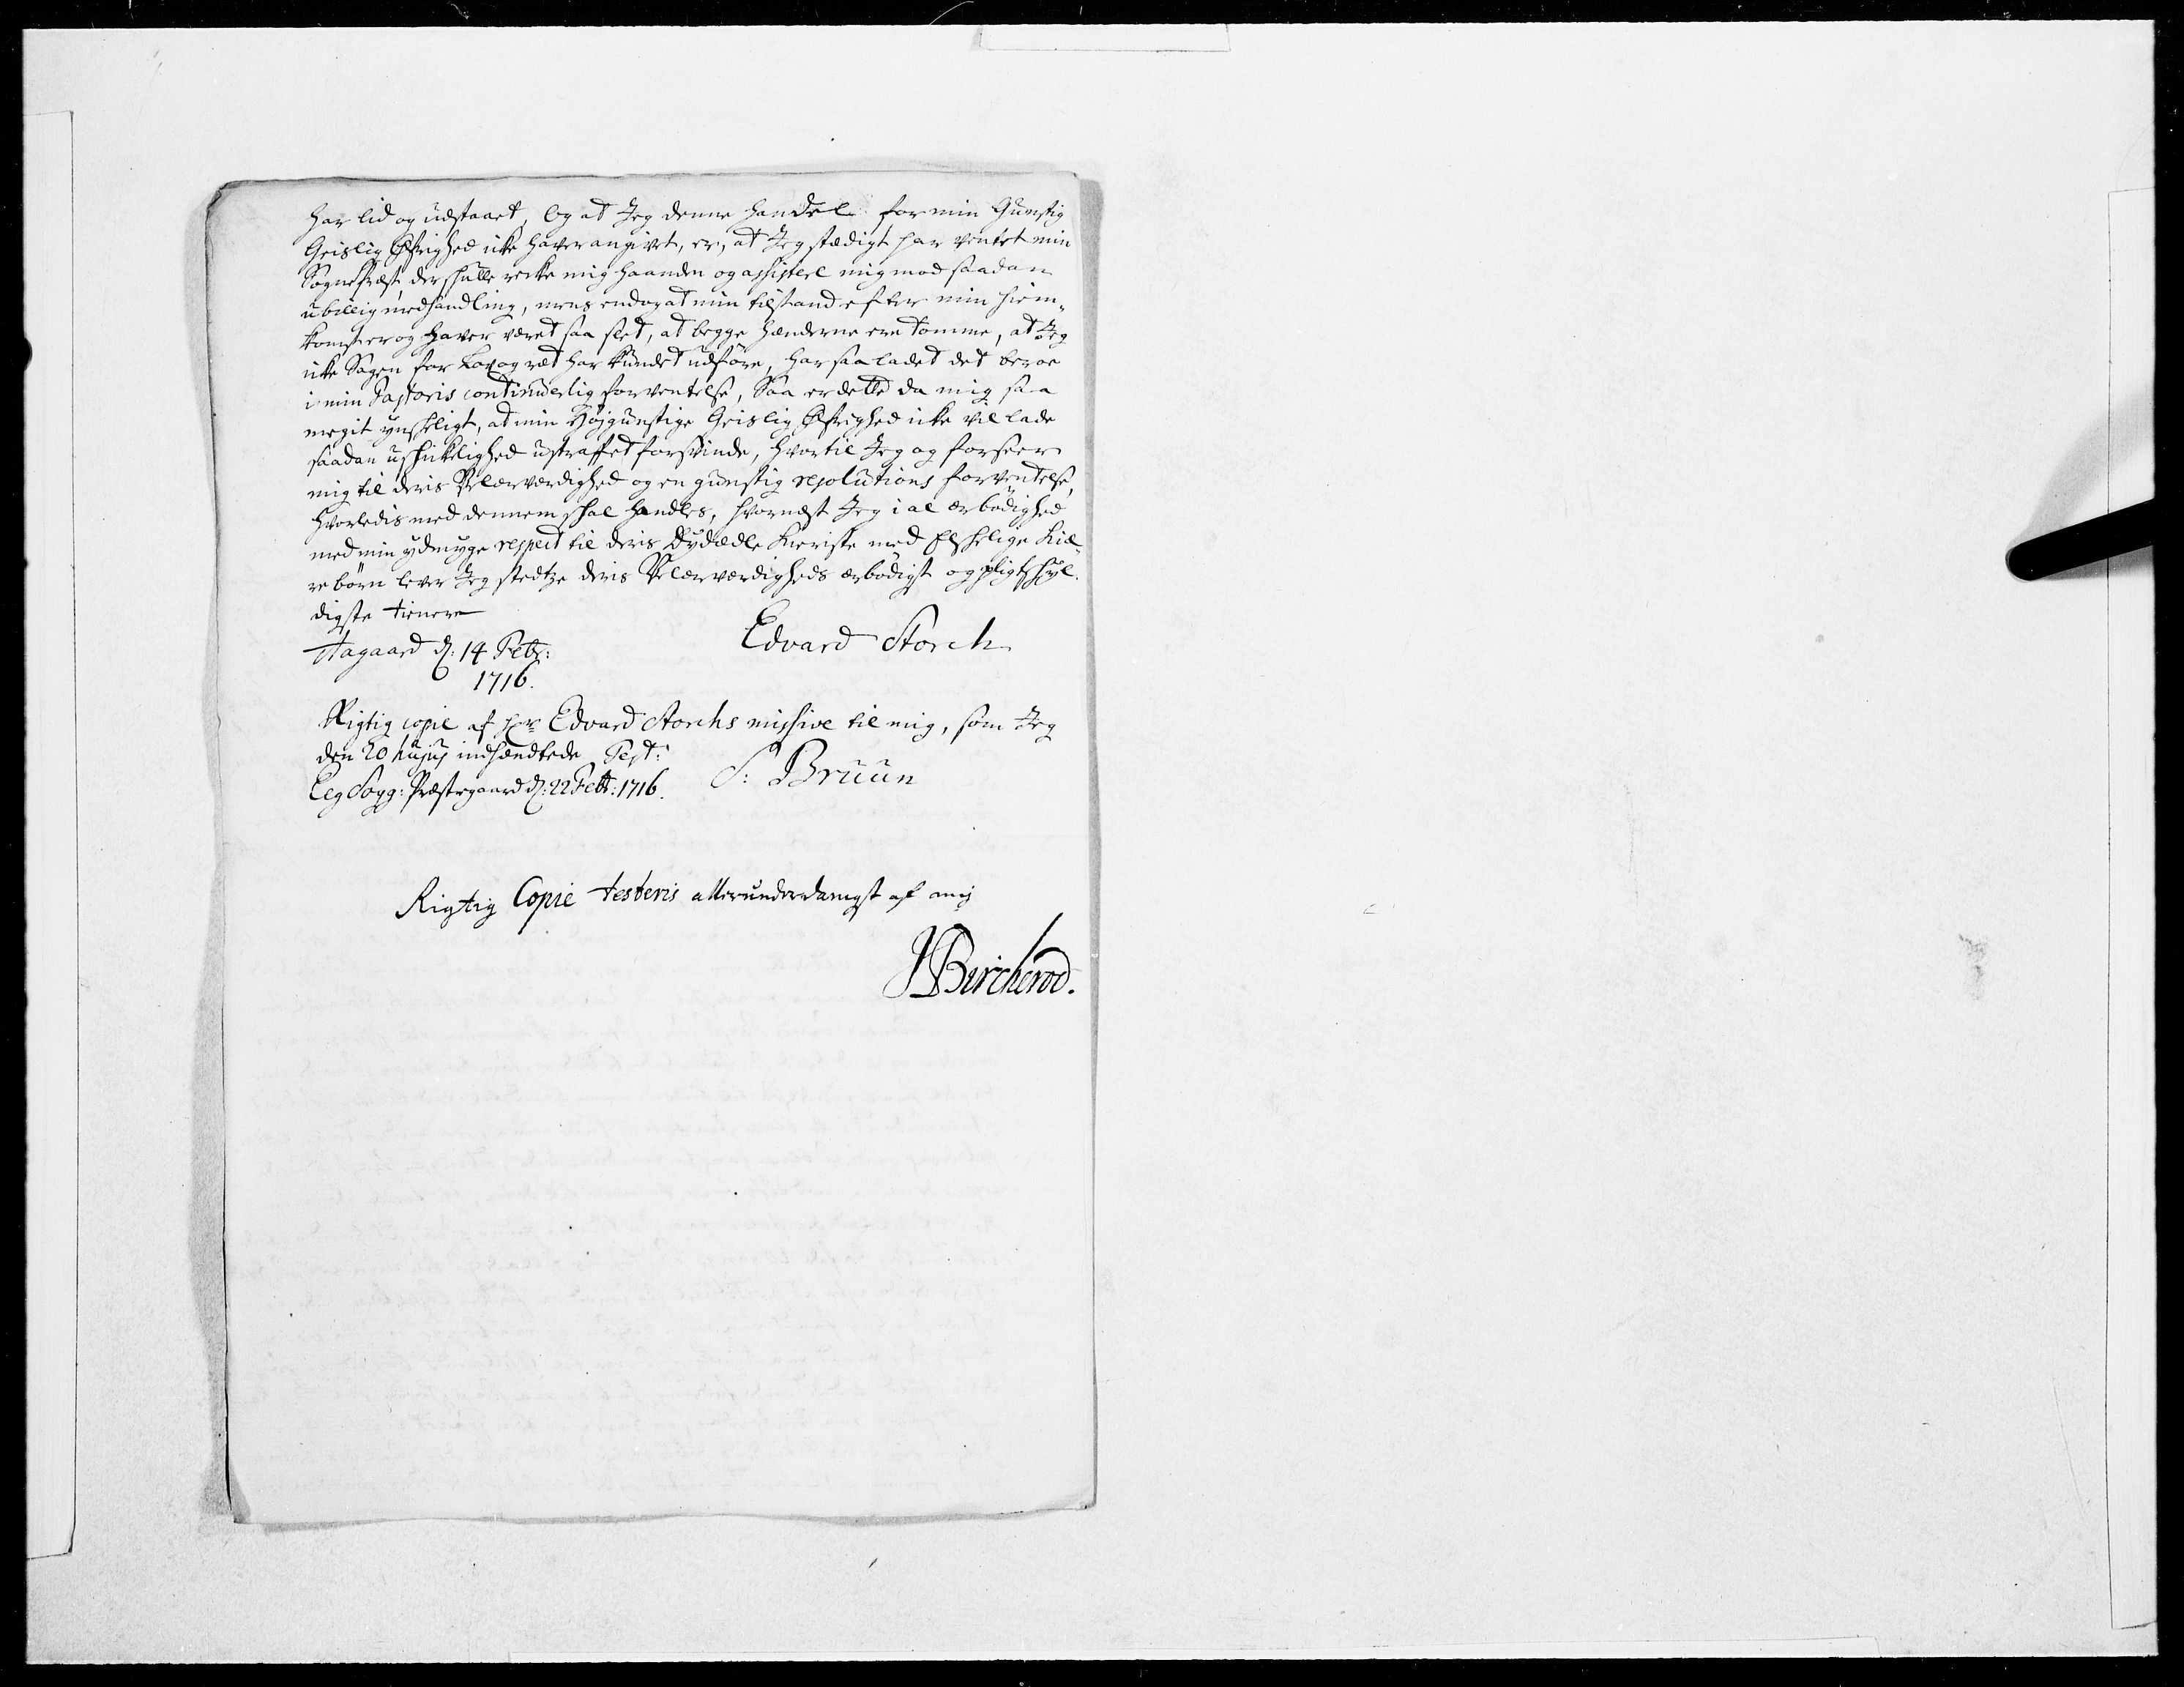 har lid og udstaaet, og at Jeg denne handel for min Gunstig
Geislig Øfrighed icke haver angivet, er, at Jeg stædigt har ventet min
Sognepræst, der skulle recke mig haanden og assistere mig mod saadan
ubillig medhandling, mens endog at min tilstand efter min hiem-
komst er og haver været saa slet, at begge hænderne ere tomme, at Jeg
icke Sagen for Lov og ræt har kundet udføre, har saa ladet det beroe
i min Pastoris continuerlig forventelse, Saa er dette da mig saa
megit ynskeligt, at min Højgunstige Geislig Øfrighed icke vil lade
saadan uskikelighed ustraffet forsvinde, hvortil Jeg og forseer
mig til deris Velærværdighed og en gunstig resolutions forventelse,
hvorledis med dennem skal handles, hvornæst Jeg i al ærbødighed
med min ydmyge respect til deris Dydædle Kieriste med Elskelige Kiæ-
re børn lever Jeg stedtze deris Velærværdigheds ærbødigst og pligtskyl-
digste tienere
Aagaard d: 14 Febr: Edvard Storch
1716.
Rigtig copie af Hr Edvard Storchs missive til mig, som Jeg
den 20 hujus indhændtede Test:
Leg Sogg: Præstegaard d: 22 Febr: 1716. S: Bruun
Rigtig Copie testeris allerunderdanigst af mig
JBircherod.